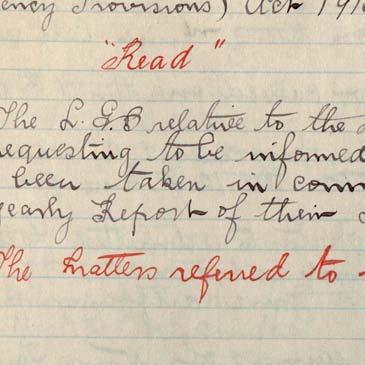 ency Provisions) Act 191
"Read"
The L.G.B relative to the
requesting to be informed
been taken in conn
yearly Report of their
The matters referred to